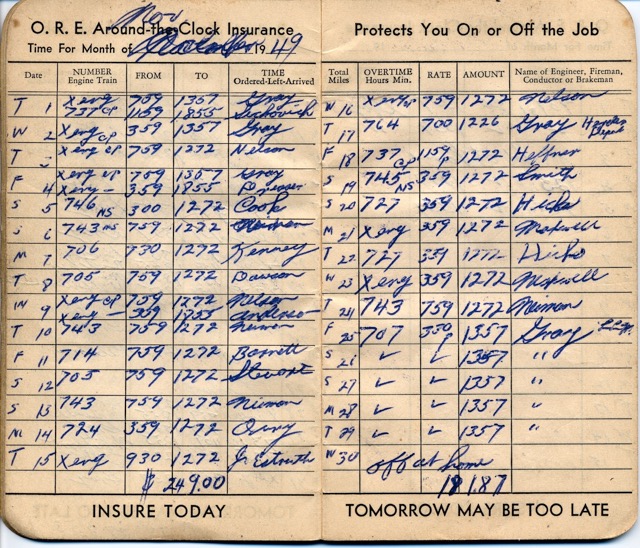 Nov
O. R. E. Around-the-Clock Insurance
Time For Month of 1949
Date NUMBER Engine Train FROM TO TIME Ordered-Left-Arrived
T 1 Xeng 759 1357 Gray
737 CP 1159 1855
W 2 Xeng CP 359 1357 Gray
T 3 Xeng CP 759 1272 Nelson
F 4 Xeng CP 759 1357 Gray
Xeng - 359 1855
S 5 746 NS 300 1272 Cook
S 6 743 NS 759 1272 Neiman
M 7 706 730 1272 Kenney
T 8 705 759 1272 Dawson
W 9 Xeng CP 759 1272 Nelson
Xeng - 359 1855
T 10 743 759 1272 Neiman
F 11 714 759 1272 Barrett
S 12 705 759 1272 Stewart
S 13 743 759 1272 Nieman
M 14 724 359 1272
T 15 Xeng 930 1272
$ 249.00
INSURE TODAY
Protects You On or Off the Job
Total Miles OVERTIME Hours Min. RATE AMOUNT Name of Engineer, Fireman, Conductor or Brakeman
W 16 Xeng 759 1272 Nelson
T 17 764 700 1226 Gray
F 18 737 CP 1159 P 1272 Heffner
S 19 745 NS 359 1272 Smith
S 20 727 359 1272 Hicks
M 21 Xeng 359 1272 Maxwell
T 22 727 359 1272 Hicks
W 23 Xeng 359 1272 Maxwell
T 24 743 759 1272 Neiman
F 25 707 330 P 1357 Gray
S 26 ✓ ✓ 1357 "
S 27 ✓ ✓ 1357 "
M 28 ✓ ✓ 1357 "
T 29 ✓ ✓ 1357 "
W 30 off at home
181.87
TOMORROW MAY BE TOO LATE